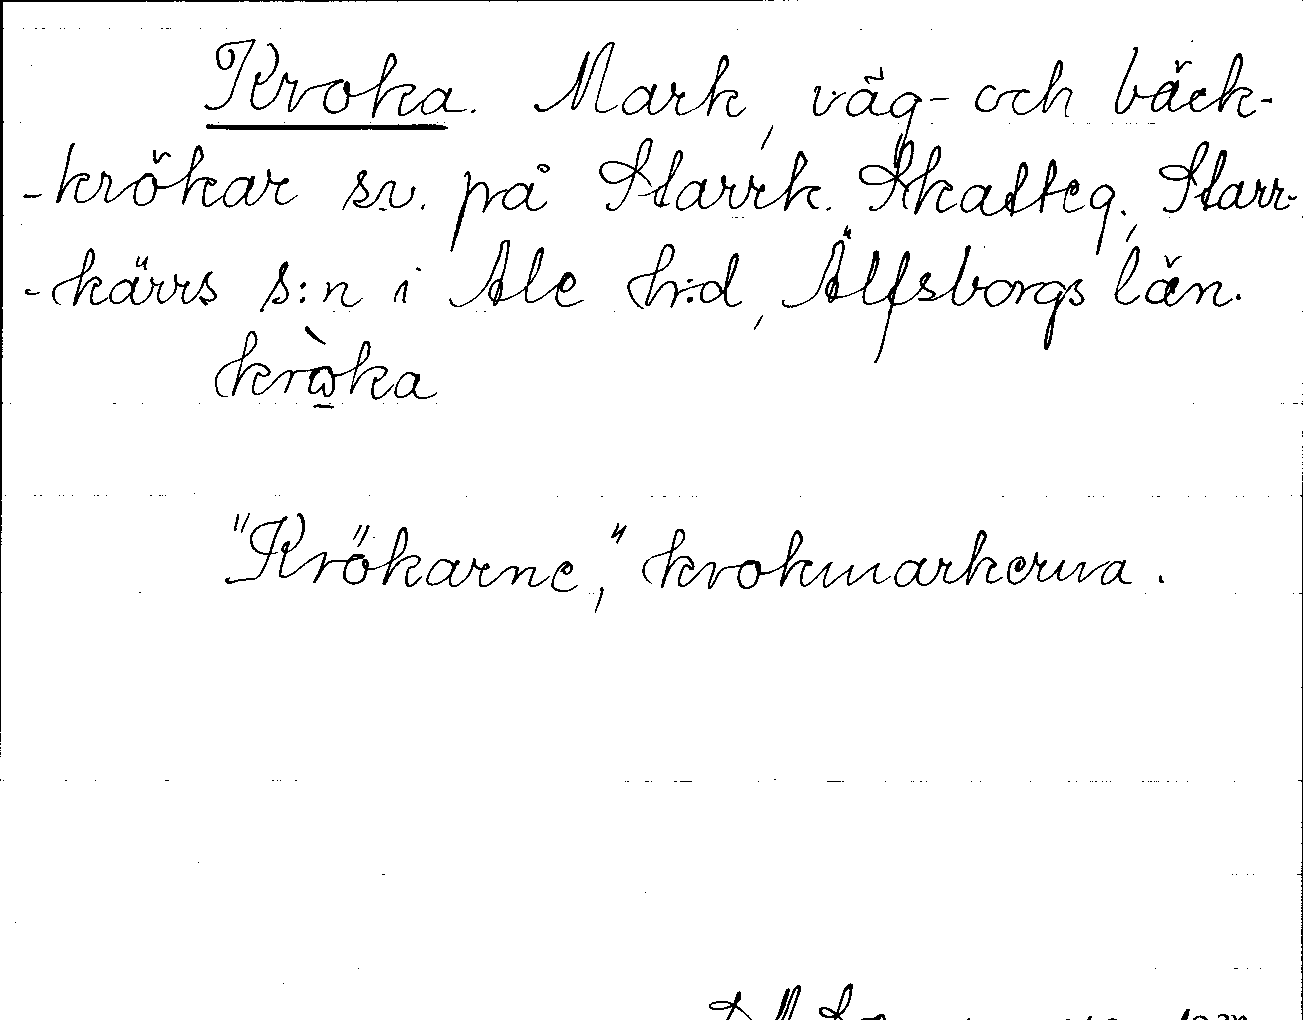 Kroka. Mark, väg- och bäck-
-krökar sv. på Starrk. Skatteg., Starr-
-kärrs s:n i Ale h:d, Älfsborgs län.
kròka
"Krökarne," krokmarkerna.